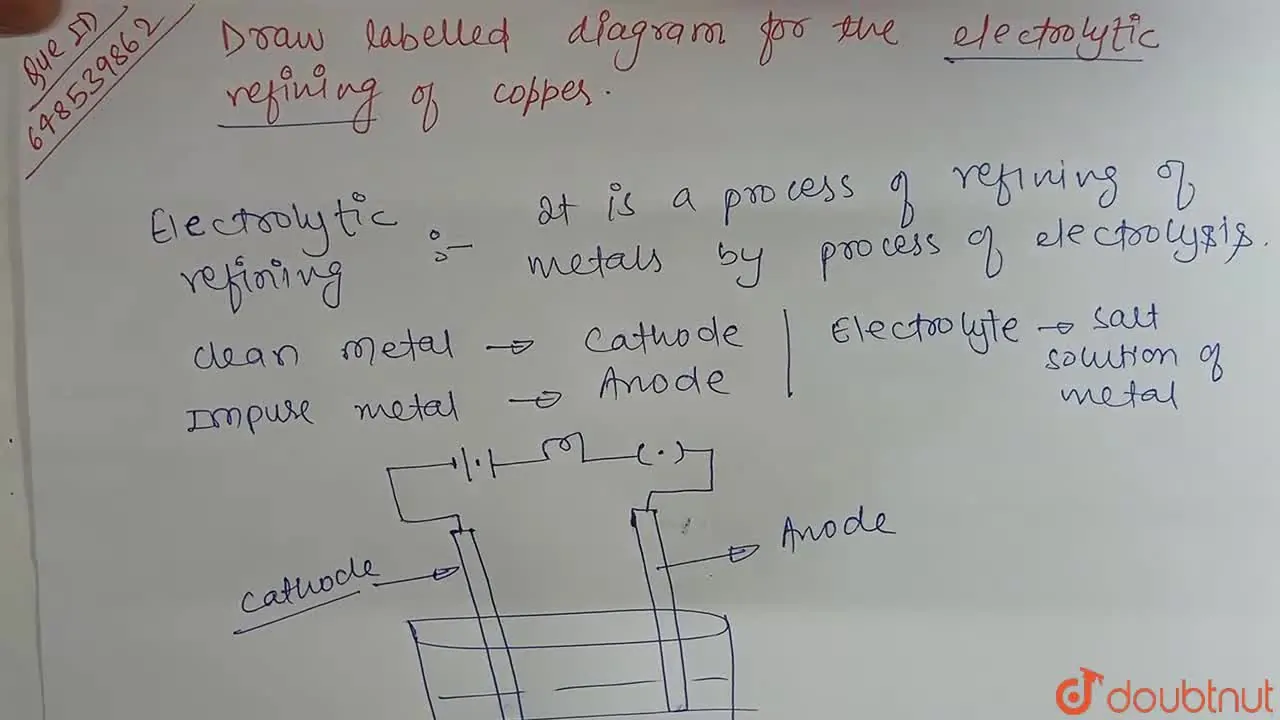 Que ID
648539862
Draw labelled diagram for the electrolytic
refining of copper.
Electrolytic
refining :-
It is a process of refining of
metals by process of electrolysis.
Clean metal → Cathode
Impure metal → Anode
Electrolyte → salt
solution of
metal
Cathode
Anode
doubtnut